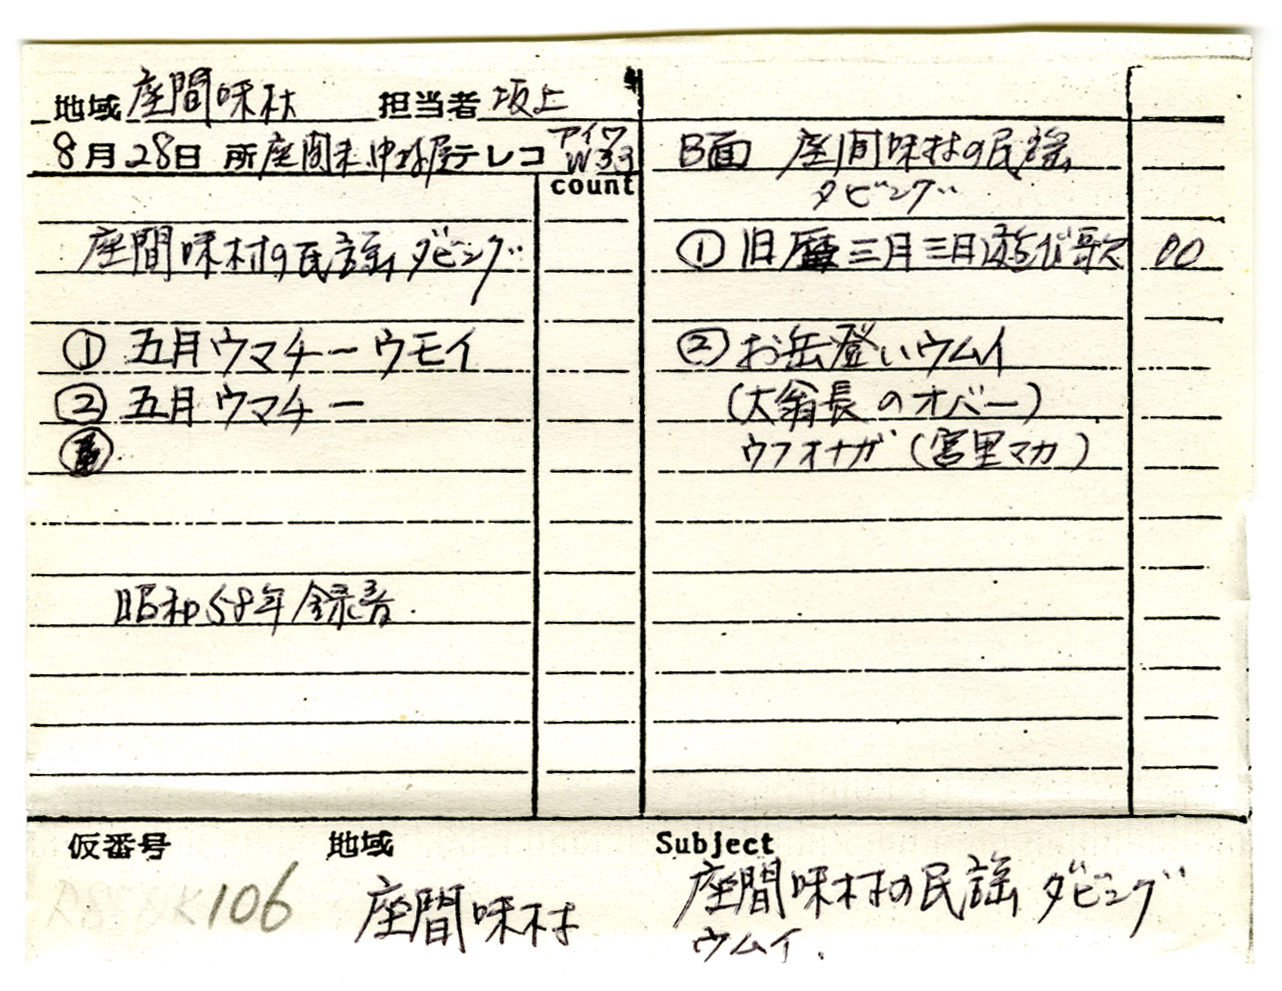 地域 座間味村 担当者 坂上
8月28日 所 座間味 中村屋 テレコ アイワ W33
count
座間味村の民謡 ダビング
① 五月ウマチーウモイ
② 五月ウマチー
昭和58年録音.
B面 座間味村の民謡
ダビング
① 旧暦三月三日遊び歌 00
② お岳登いウムイ
(大翁長のオバー)
ウフオナガ (宮里マカ)
仮番号 地域 Subject
106 座間味村 座間味村の民謡 ダビング
ウムイ.